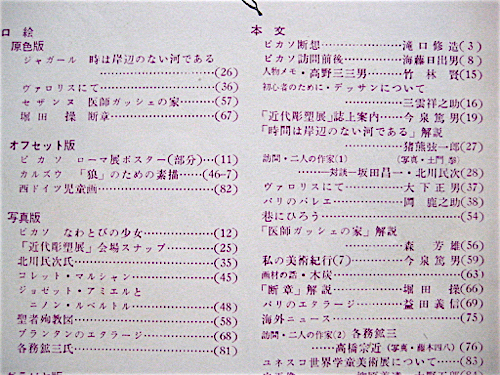 口絵
原色版
ジャガール 時は岸辺のない河である
……(26)
ヴァロリスにて……(36)
セザンヌ 医師ガッシェの家……(57)
堀田操 断章……(67)
オフセット版
ピカソ ローマ展ポスター(部分)…(11)
カルズウ「狼」のための素描……(46-7)
西ドイツ児童画……(82)
写真版
ピカソ なわとびの少女……(12)
「近代彫塑展」会場スナップ……(25)
北川民次氏……(35)
コレット・マルシャン……(45)
ジョゼット・アミエルと
ニノン・ルベルトル……(48)
聖者殉教図……(58)
プランタンのエタラージ……(68)
各務鉱三氏……(81)
本文
ピカソ断想……滝口修造(3)
ピカソ訪問前後……海藤日出男(8)
人物メモ・高野三三男……竹林賢(15)
初心者のために・デッサンについて
……三雲祥之助(16)
「近代彫塑展」誌上案内……今泉篤男(19)
「時間は岸辺のない河である」解説
……猪熊弦一郎(27)
訪問・二人の作家(1) (写真・土門拳)
――対談―坂田昌一・北川民次(28)
ヴァロリスにて……大下正男(37)
パリのバレエ……岡鹿之助(38)
巷にひろう……(54)
「医師ガッシェの家」解説
……森芳雄(56)
私の美術紀行(7)……今泉篤男(59)
画材の話・木炭……(63)
「断章」解説……堀田操(66)
パリのエタラージ……益田義信(69)
海外ニュース……(75)
訪問・二人の作家(2) 各務鉱三
……高橋宗近(写真・藤本四八)(76)
ユネスコ世界学童美術展について……(83)